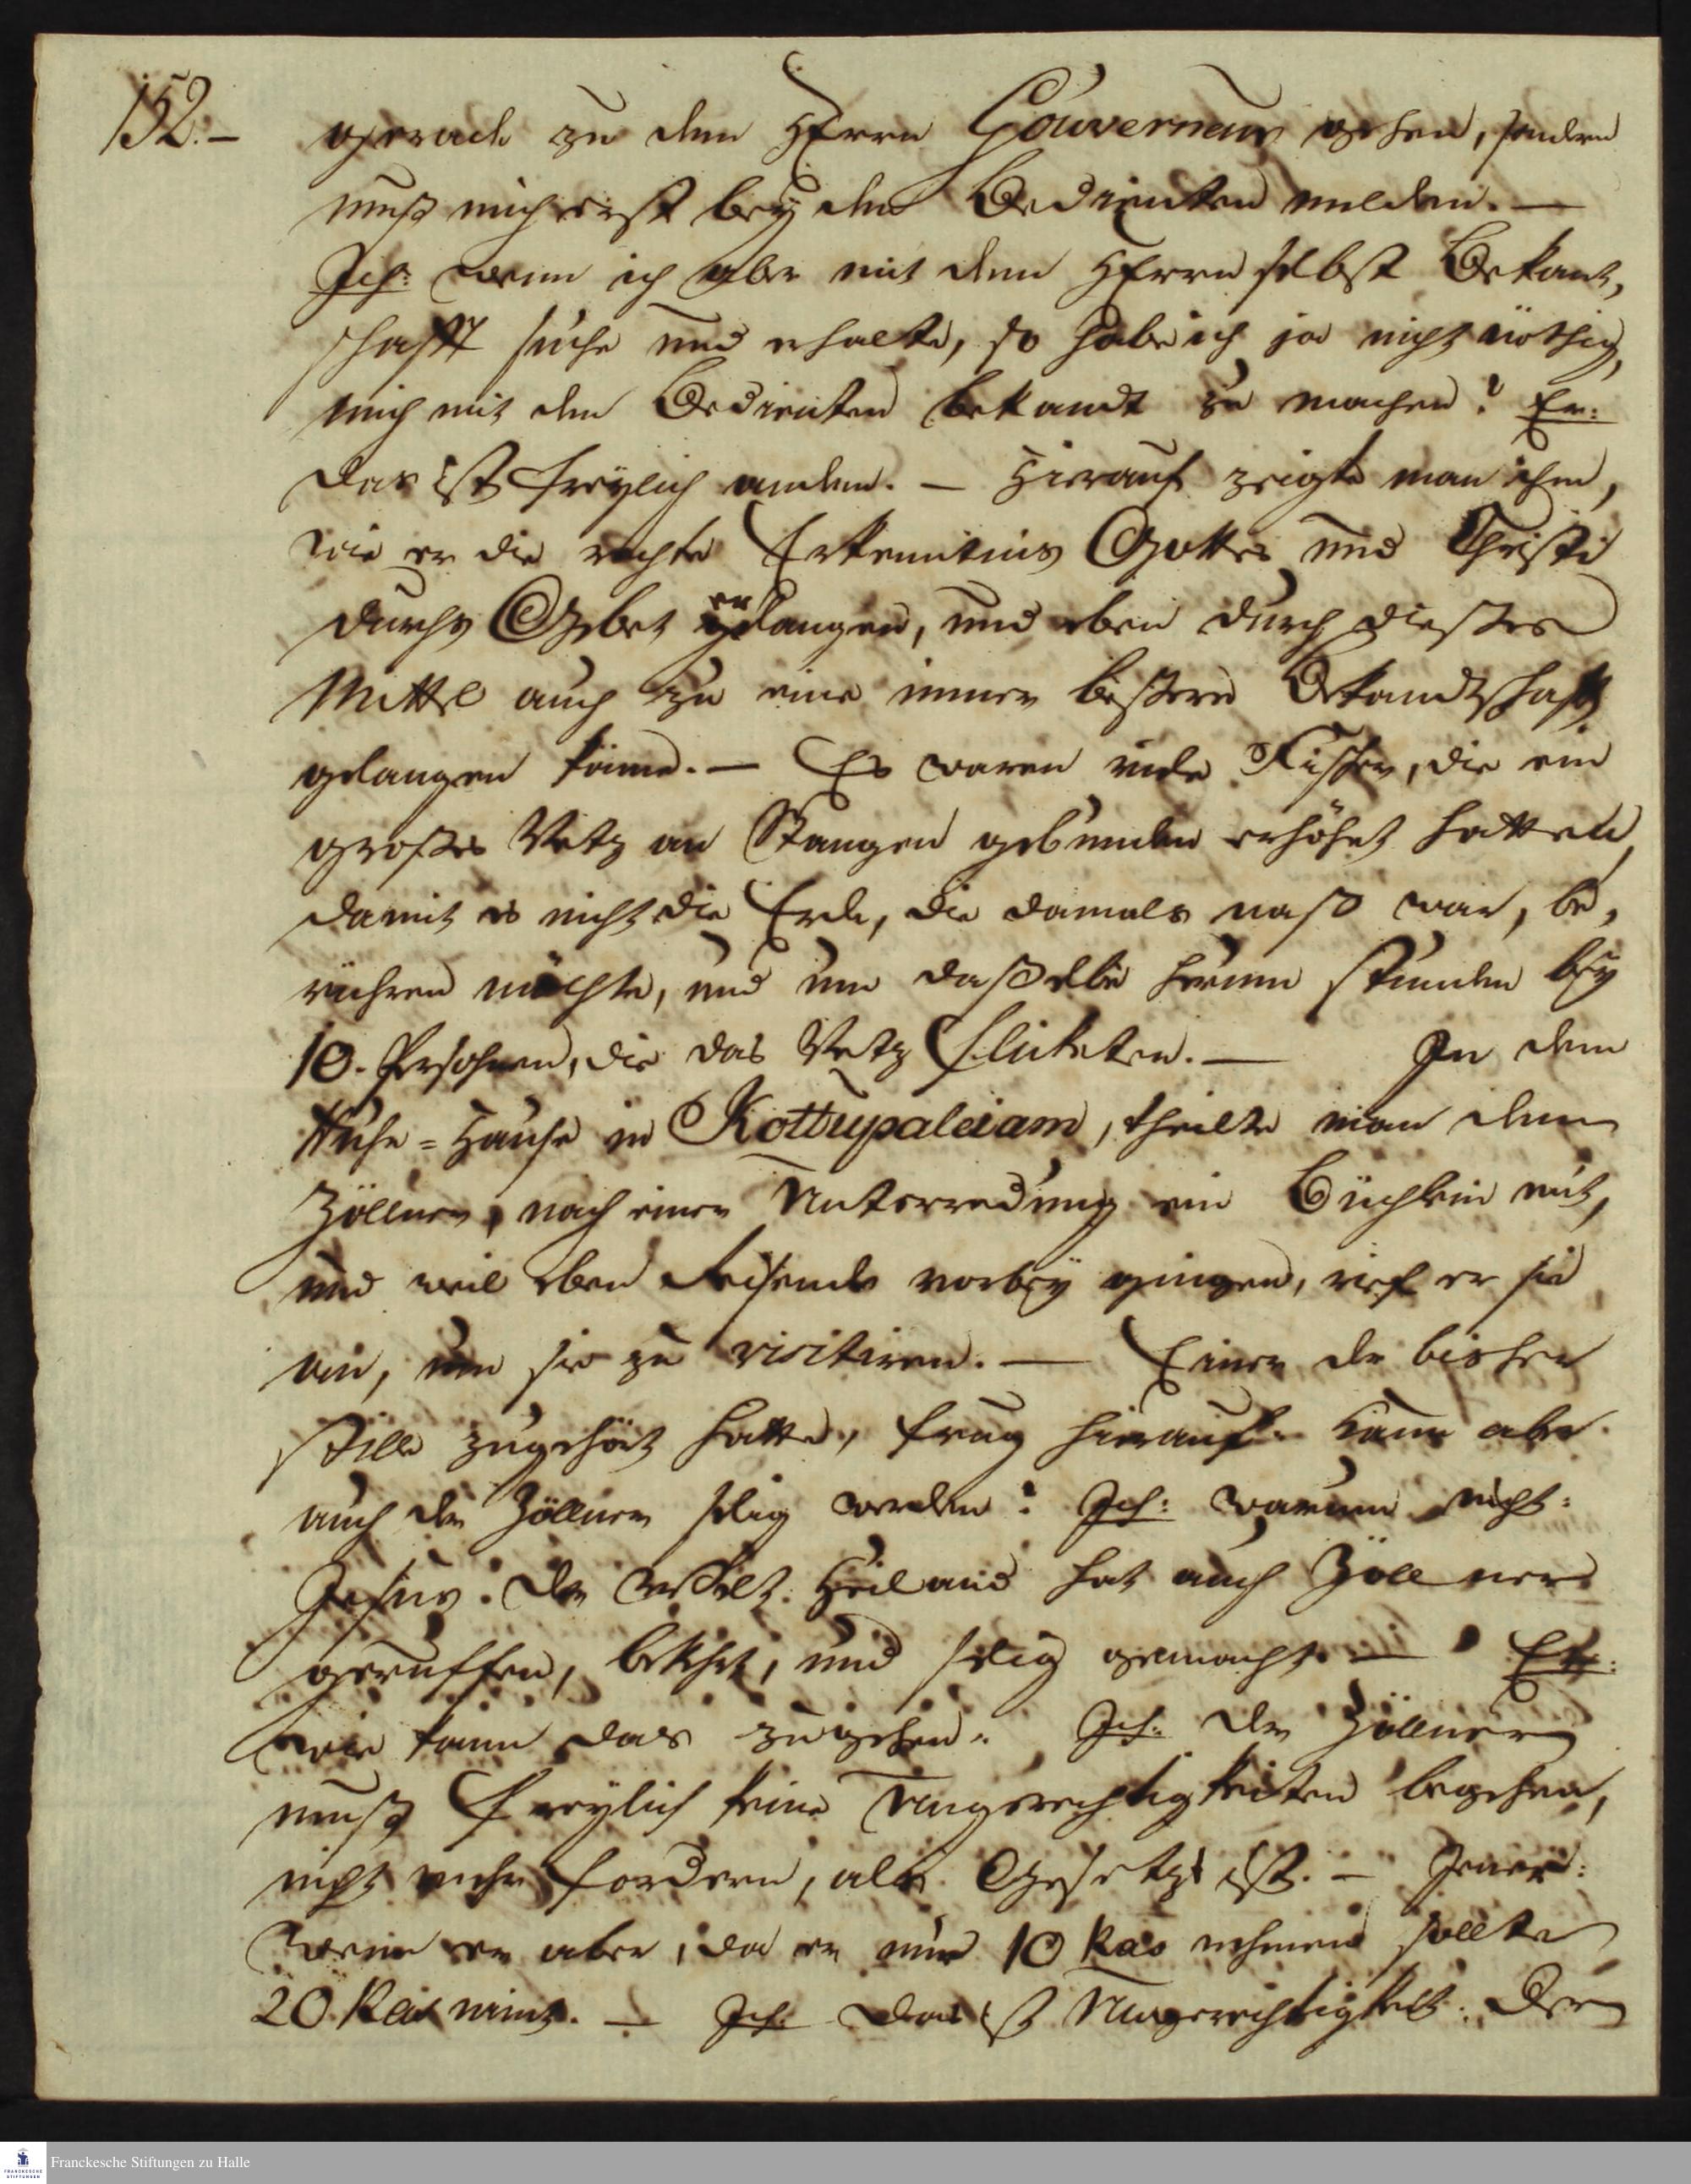 152.–
gerade zu dem Herrn Gouverneur gehen, sondern
muß mich erst bey den Bedienten melden. —
Ich: wenn ich aber mit dem Herrn selbst Bekant,
schafft suche und erhalte, so habe ich ja nicht nöthig,
mich mit den Bedienten bekandt zu machen? Er:
das ist freylich anders. — Hierauf zeigte man ihm,
wie er die rechte Erkenntnis Gottes und Christi
durchs Gebet erlangen, und eben durch dießes
Mittel auch zu einer immer beßeren Bekandtschaft
gelangen könne. — Es waren viele Fischer, die ein
großes Netz an Stangen gebunden erhöhet hatten,
damit es nicht die Erde, die damals naß war, be,
rühren möchte, und um daßelbe herum stunden bey
10. Persohnen, die das Netz flickten. — In dem
Ruhe-Hause in Kottupaleiam, theilte man dem
Zöllner, nach einer Unterredung ein Büchlein mit,
und weil eben Reisende vorbey gingen, rief er sie
ein, um sie zu visitiren. — Einer der bisher
stille zugehört hatte, frug hierauf: kann aber
auch der Zöllner selig werden? Ich: warum nicht:
Jesus der Welt Heiland hat auch Zöllner
geruffen, bekehrt, und selig gemacht. — Er:
wie kann das zugehen. Ich: der Zöllner
muß freylich keine Ungerechtigkeiten begehen,
nicht mehr fordern, als Gesetzt ist. — Jener:
wenn er aber, da er nur 10 Kas nehmen sollte
20 Kas nimt. — Ich: das ist Ungerechtigkeit. Der
Franckesche Stiftungen zu Halle
FRANCKESCHE
STIFTUNGEN